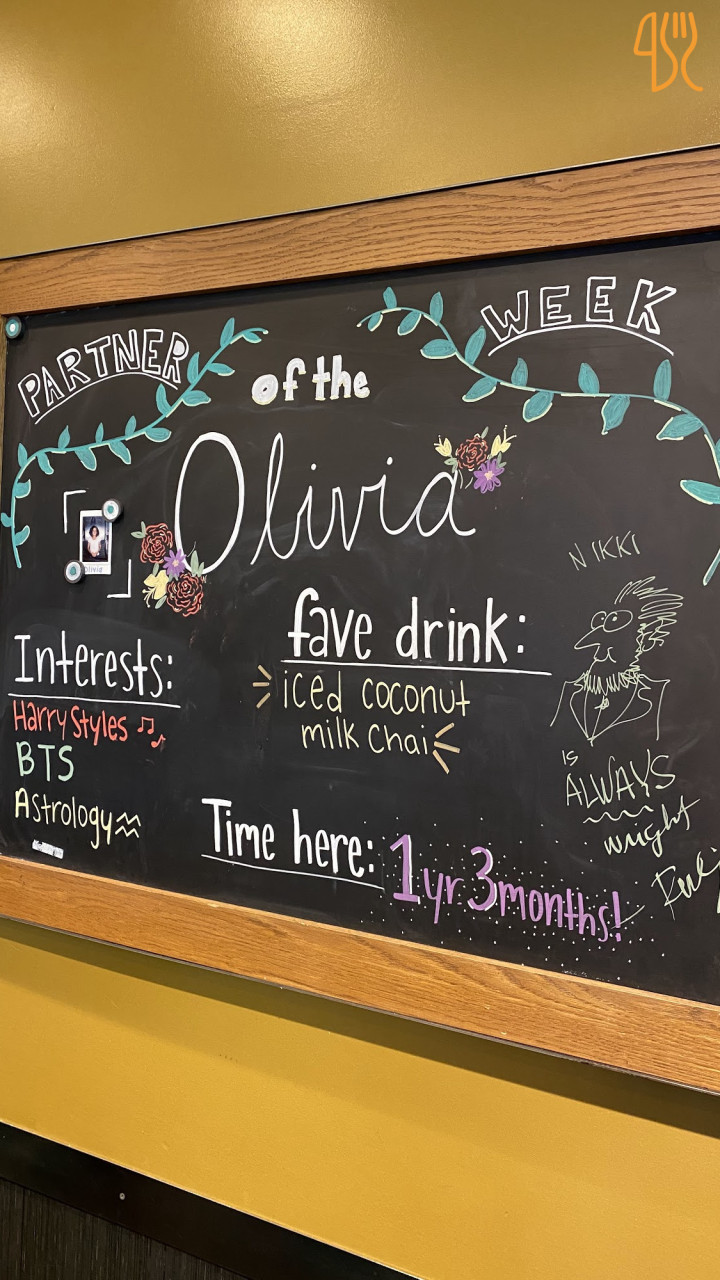 PARTNER
of the
WEEK
Olivia
Olivia
Interests:
Harry Styles
BTS
Astrology
fave drink:
iced coconut
milk chai
Time here:
1yr 3months!
NIKKI
is
ALWAYS
wright